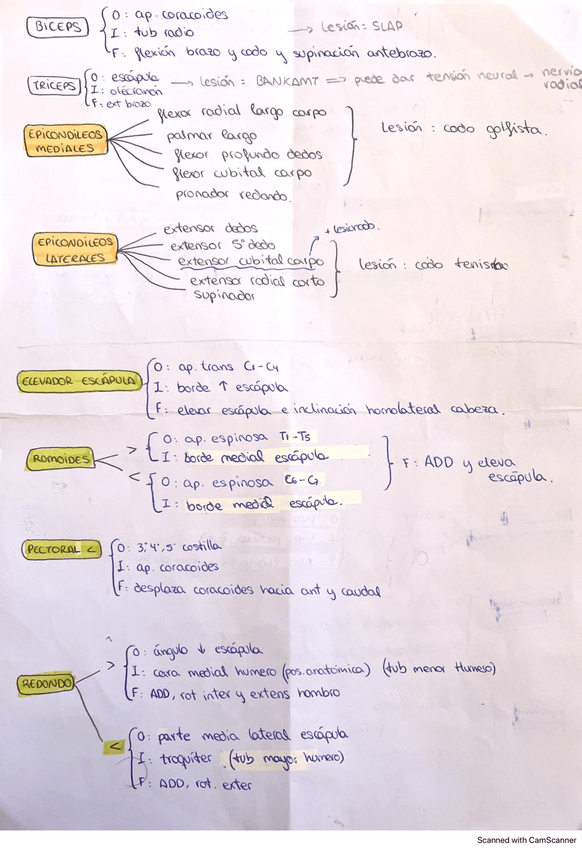 BICEPS
O: ap. coracoides
I: tub radio → Lesión: SLAP
F: flexión brazo y codo y supinación antebrazo.
TRICEPS
O: escápula → lesión = BANKAMT => puede dar tensión neural → nervio radial
I: olécranon
F: ext brazo
EPICONDILEOS MEDIALES
flexor radial largo carpo
palmar largo
flexor profundo dedos
flexor cubital carpo
pronador redondo.
Lesión: codo golfista.
EPICONDILEOS LATERALES
extensor dedos
extensor 5º dedo
extensor cubital carpo
+ lesionado.
extensor radial corto
supinador
lesión: codo tenista
ELEVADOR ESCÁPULA
O: ap. trans C1-C4
I: borde ↑ escápula
F: elevar escápula e inclinación homolateral cabeza.
ROMOIDES
> O: ap. espinosa T1-T5
I: borde medial escápula
< O: ap. espinosa C6-C7
I: borde medial escápula.
F: ADD y eleva escápula.
PECTORAL <
O: 3º, 4º, 5º costilla
I: ap. coracoides
F: desplaza coracoides hacia ant y caudal
REDONDO
> O: ángulo ↓ escápula
I: cara medial humero (pos. anatómica) (tub menor Humero)
F: ADD, rot inter y extens hombro
< O: parte media lateral escápula
I: troquiter (tub mayor humero)
F: ADD, rot. exter
Scanned with CamScanner